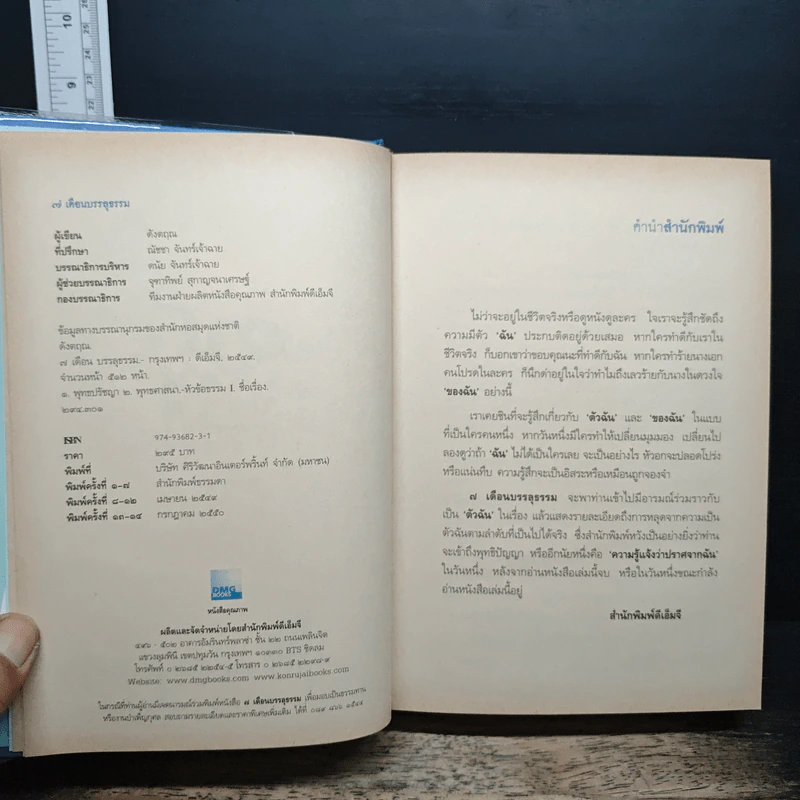 ๗ เดือนบรรลุธรรม
ผู้เขียน ดังตฤณ
ที่ปรึกษา ณัชชา จันทร์เจ้าฉาย
บรรณาธิการบริหาร ดนัย จันทร์เจ้าฉาย
ผู้ช่วยบรรณาธิการ จุฑาทิพย์ สุกาญจนาเศรษฐ์
กองบรรณาธิการ ทีมงานฝ่ายผลิตหนังสือคุณภาพ สำนักพิมพ์ดีเอ็มจี
ข้อมูลทางบรรณานุกรมของสำนักหอสมุดแห่งชาติ
ดังตฤณ.
๗ เดือน บรรลุธรรม.- กรุงเทพฯ : ดีเอ็มจี, ๒๕๔๙.
จำนวนหน้า ๕๑๒ หน้า.
๑. พุทธปรัชญา ๒. พุทธศาสนา.-หัวข้อธรรม I. ชื่อเรื่อง.
๒๙๔.๓๐๑
ISBN 974-93682-3-1
ราคา ๒๙๕ บาท
พิมพ์ที่ บริษัท ศิริวัฒนาอินเตอร์พริ้นท์ จำกัด (มหาชน)
พิมพ์ครั้งที่ ๑-๗ สำนักพิมพ์ธรรมดา
พิมพ์ครั้งที่ ๘-๑๒ เมษายน ๒๕๔๙
พิมพ์ครั้งที่ ๑๓-๑๔ กรกฎาคม ๒๕๕๐
DMG
BOOKS
หนังสือคุณภาพ
ผลิตและจัดจำหน่ายโดยสำนักพิมพ์ดีเอ็มจี
๔๙๖ - ๕๐๒ อาคารอัมรินทร์พลาซ่า ชั้น ๒๒ ถนนเพลินจิต
แขวงลุมพินี เขตปทุมวัน กรุงเทพฯ ๑๐๓๓๐ BTS ชิดลม
โทรศัพท์ ๐ ๒๖๘๕ ๒๒๕๔-๕ โทรสาร ๐ ๒๖๘๕ ๒๒๙๘-๙
Website: www.dmgbooks.com www.konrujaibooks.com
ในกรณีที่ท่านผู้อ่านมีเจตนารมณ์ร่วมพิมพ์หนังสือ ๗ เดือนบรรลุธรรม เพื่อมอบเป็นธรรมทาน
หรืองานบำเพ็ญกุศล สอบถามรายละเอียดและราคาพิเศษเพิ่มเติม ได้ที่
คำนำสำนักพิมพ์
ไม่ว่าจะอยู่ในชีวิตจริงหรือดูหนังดูละคร ใจเราจะรู้สึกชัดถึง
ความมีตัว 'ฉัน' ประกบติดอยู่ด้วยเสมอ หากใครทำดีกับเราใน
ชีวิตจริง ก็บอกเขาว่าขอบคุณนะที่ทำดีกับฉัน หากใครทำร้ายนางเอก
คนโปรดในละคร ก็นึกด่าอยู่ในใจว่าทำไมถึงเลวร้ายกับนางในดวงใจ
'ของฉัน' อย่างนี้
เราเคยชินที่จะรู้สึกเกี่ยวกับ 'ตัวฉัน' และ 'ของฉัน' ในแบบ
ที่เป็นใครคนหนึ่ง หากวันหนึ่งมีใครทำให้เปลี่ยนมุมมอง เปลี่ยนไป
ลองดูว่าถ้า 'ฉัน' ไม่ได้เป็นใครเลย จะเป็นอย่างไร หัวอกจะปลอดโปร่ง
หรือแน่นทึบ ความรู้สึกจะเป็นอิสระหรือเหมือนถูกจองจำ
๗ เดือนบรรลุธรรม จะพาท่านเข้าไปมีอารมณ์ร่วมราวกับ
เป็น 'ตัวฉัน' ในเรื่อง แล้วแสดงรายละเอียดถึงการหลุดจากความเป็น
ตัวฉันตามลำดับที่เป็นไปได้จริง ซึ่งสำนักพิมพ์หวังเป็นอย่างยิ่งว่าท่าน
จะเข้าถึงพุทธิปัญญา หรืออีกนัยหนึ่งคือ 'ความรู้แจ้งว่าปราศจากฉัน'
ในวันหนึ่ง หลังจากอ่านหนังสือเล่มนี้จบ หรือในวันหนึ่งขณะกำลัง
อ่านหนังสือเล่มนี้อยู่
สำนักพิมพ์ดีเอ็มจี